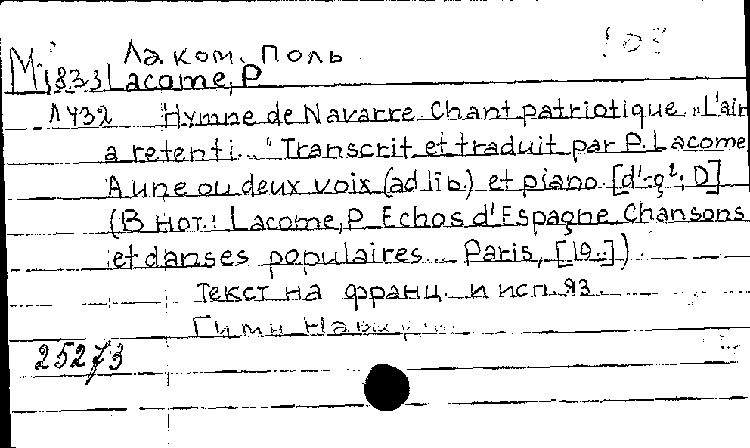 Лаком, Поль
М1833 Lacome, P
Л432 Hymne de Navarre. Chant patriotique „L'air
a retenti..." Transcrit et traduit par P. Lacome
A une ou deux voix (ad lib.) et piano. [d¹-g²; D]
(В нот.: Lacome, P Echos d'Espagne Chansons
et danses populaires... Paris, [19..])
Текст на франц. и исп. яз.
Гимн
25273